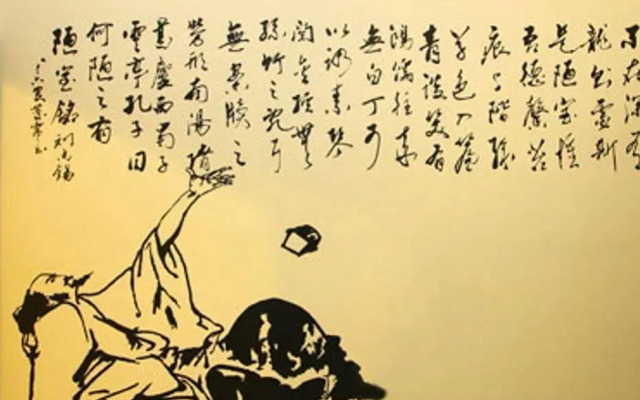 不在深有
龍則靈斯
是陋室惟
吾德馨苔
痕上階綠
草色入簾
青談笑有
鴻儒往來
無白丁可
以調素琴
閱金經無
絲竹之亂耳
無案牘之
勞形南陽諸
葛廬西蜀子
雲亭孔子曰
何陋之有
陋室銘劉禹錫